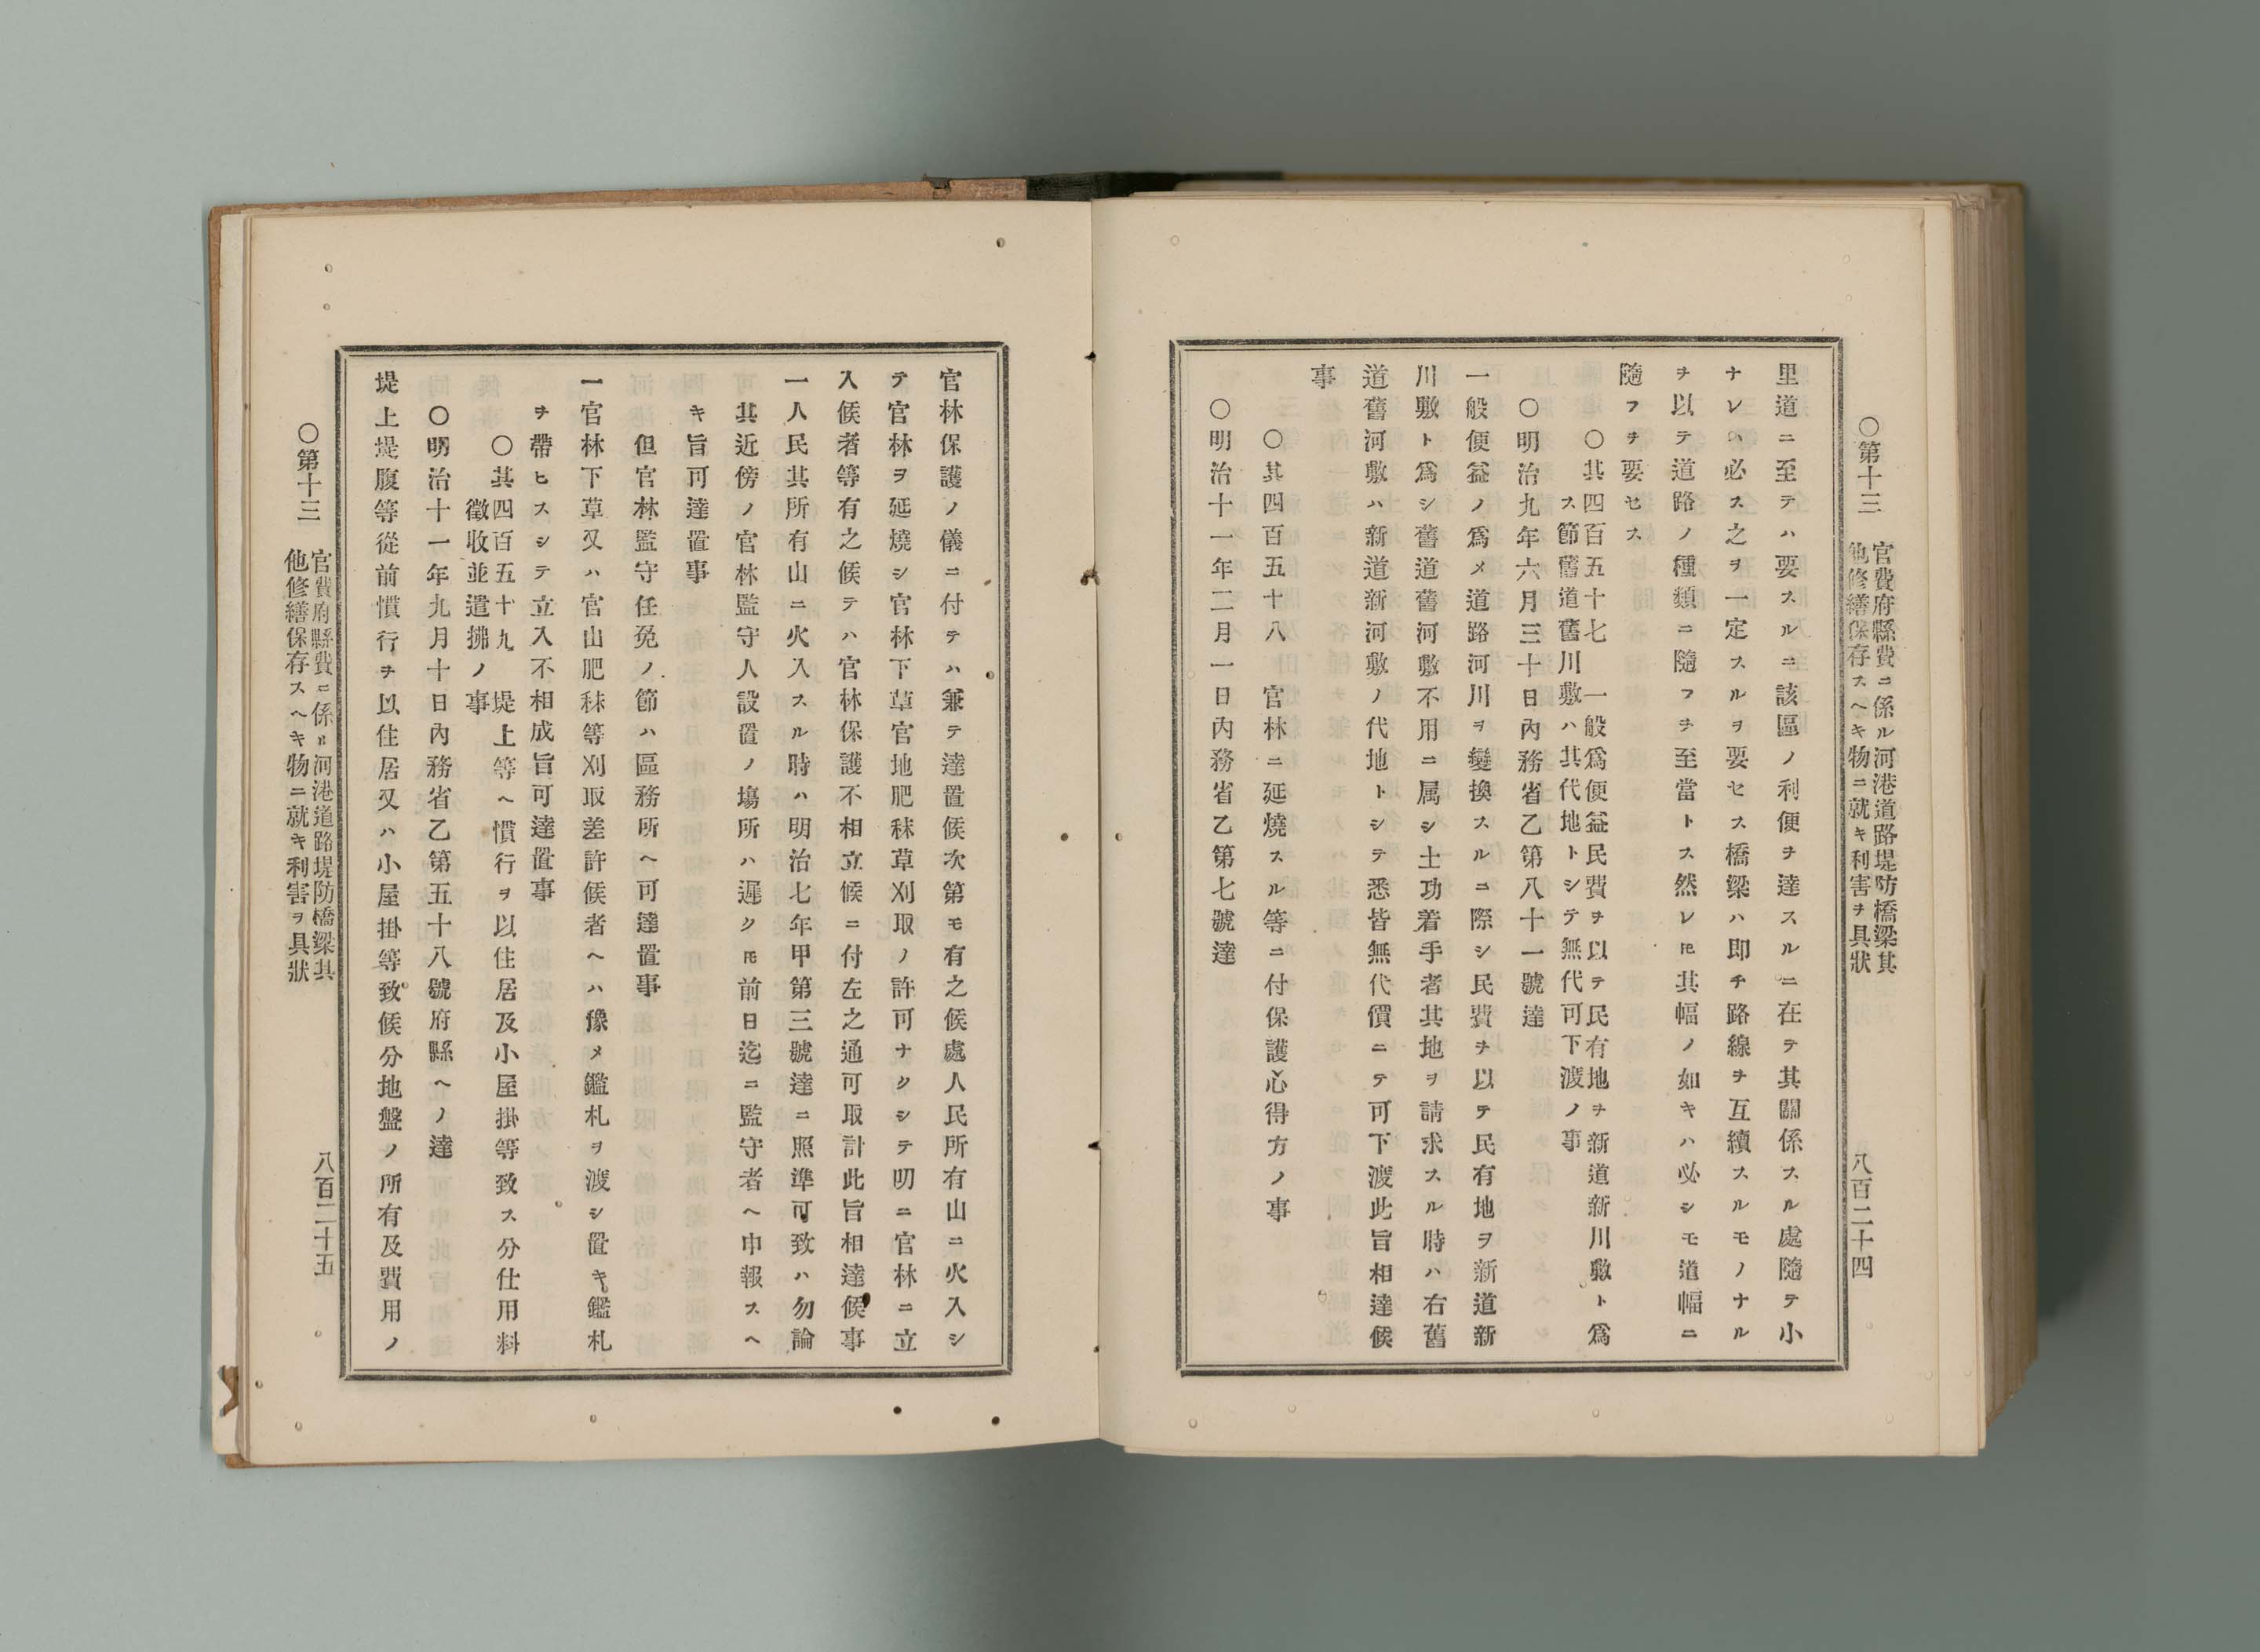 ○第十三 官費府縣費ニ係ル河港道路堤防橋梁其
他修繕保存スヘキ物ニ就キ利害ヲ具狀
八百二十四
里道ニ至テハ要スルニ該區ノ利便ヲ達スルニ在テ其關係スル處隨テ小
ナレハ必ス之ヲ一定スルヲ要セス橋梁ハ即チ路線ヲ互續スルモノナル
ヲ以テ道路ノ種類ニ隨フヲ至當トス然レ𪜈其幅ノ如キハ必シモ道幅ニ
隨フヲ要セス
○其四百五十七 一般爲便益民費ヲ以テ民有地ヲ新道新川敷ト爲
ス節舊道舊川敷ハ其代地トシテ無代可下渡ノ事
○明治九年六月三十日內務省乙第八十一號達
一般便益ノ爲メ道路河川ヲ變換スルニ際シ民費ヲ以テ民有地ヲ新道新
川敷ト爲シ舊道舊河敷不用ニ属シ土功着手者其地ヲ請求スル時ハ右舊
道舊河敷ハ新道新河敷ノ代地トシテ悉皆無代價ニテ可下渡此旨相達候
事
○其四百五十八 官林ニ延燒スル等ニ付保護心得方ノ事
○明治十一年二月一日內務省乙第七號達
官林保護ノ儀ニ付テハ兼テ達置候次第モ有之候處人民所有山ニ火入シ
テ官林ヲ延燒シ官林下草官地肥秣草刈取ノ許可ナクシテ叨ニ官林ニ立
入候者等有之候テハ官林保護不相立候ニ付左之通可取計此旨相達候事
一人民其所有山ニ火入スル時ハ明治七年甲第三號達ニ照準可致ハ勿論
其近傍ノ官林監守人設置ノ塲所ハ遲クモ前日迄ニ監守者ヘ申報スヘ
キ旨可達置事
但官林監守任免ノ節ハ區務所ヘ可達置事
一官林下草又ハ官山肥秣等刈取差許候者ヘハ豫メ鑑札ヲ渡シ置キ鑑札
ヲ帶ヒスシテ立入不相成旨可達置事
○其四百五十九 堤上等ヘ慣行ヲ以住居及小屋掛等致ス分仕用料
徵收並遣拂ノ事
○明治十一年九月十日內務省乙第五十八號府縣ヘノ達
堤上堤腹等從前慣行ヲ以住居又ハ小屋掛等致候分地盤ノ所有及費用ノ
○第十三 官費府縣費ニ係ル河港道路堤防橋梁其
他修繕保存スヘキ物ニ就キ利害ヲ具狀
八百二十五